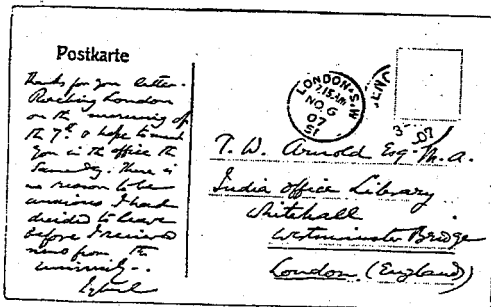 Postkarte
Thanks for your letter.
Reaching London
on the morning of
the 7th & hope to meet
you in the office the
same day. There is
no reason to be
anxious. I had
decided to leave
before I received
news from the
university..
Iqbal
LONDON.S.W
7.15AM
NO 6
07
07
T. W. Arnold Esq. M.A.
India Office Library
Whitehall
Westminster Bridge
London (England)